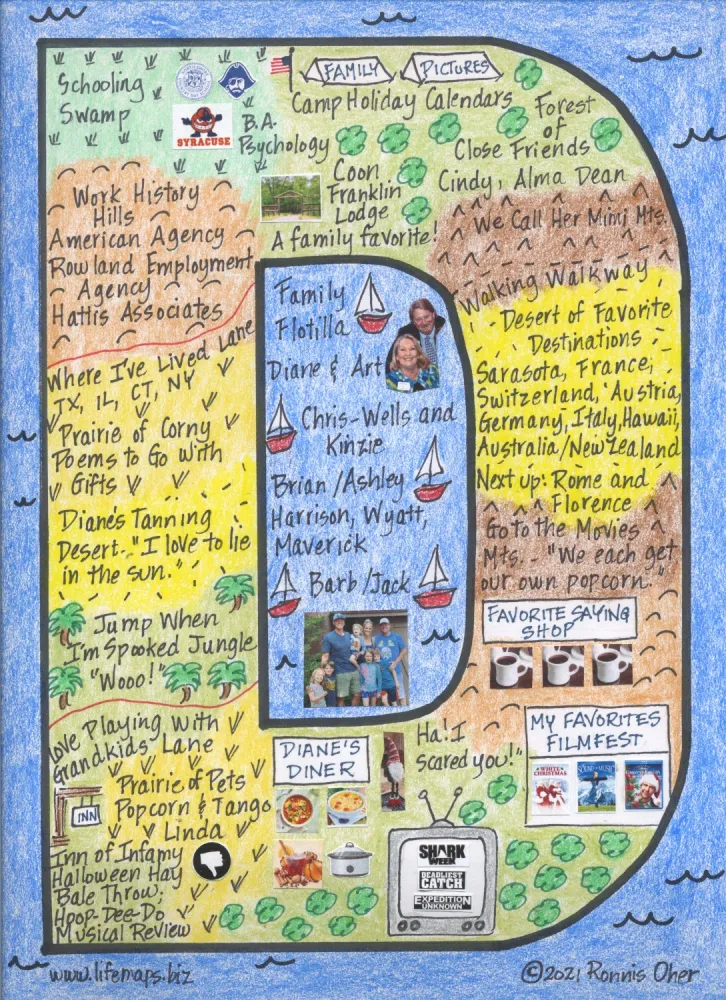 Schooling
Swamp
SYRACUSE
B.A.
Psychology
FAMILY PICTURES
Camp Holiday Calendars
Forest
of
Close Friends
Cindy, Alma Dean
Coon
Franklin
Lodge
A family favorite!
We Call Her Mimi Mts.
Walking Walkway
Work History
Hills
American Agency
Rowland Employment
Agency
Hattis Associates
Where I've Lived Lane
TX, IL, CT, NY
Prairie of Corny
Poems to Go With
Gifts
Diane's Tanning
Desert-"I love to lie
in the sun."
Jump When
I'm Spooked Jungle
"Wooo!"
Family
Flotilla
Diane & Art
Chris-Wells and
Kinzie
Brian/Ashley
Harrison, Wyatt,
Maverick
Barb/Jack
Desert of Favorite
Destinations
Sarasota, France,
Switzerland, Austria,
Germany, Italy, Hawaii,
Australia/New Zealand
Next up: Rome and
Florence
Go to the Movies
Mts. - "We each get
our own popcorn."
FAVORITE SAYING
SHOP
Ha! I
scared you!"
MY FAVORITES
FILMFEST
WHITE
CHRISTMAS
SOUND OF MUSIC
Love Playing with
Grandkids Lane
Prairie of Pets
Popcorn & Tango
Linda
INN
Inn of Infamy
Halloween Hay
Bale Throw;
Hoop-Dee-Do
Musical Review
DIANE'S
DINER
SHARK
WEEK
DEADLIEST
CATCH
EXPEDITION
UNKNOWN
www.lifemaps.biz
©2021 Ronnis Oher